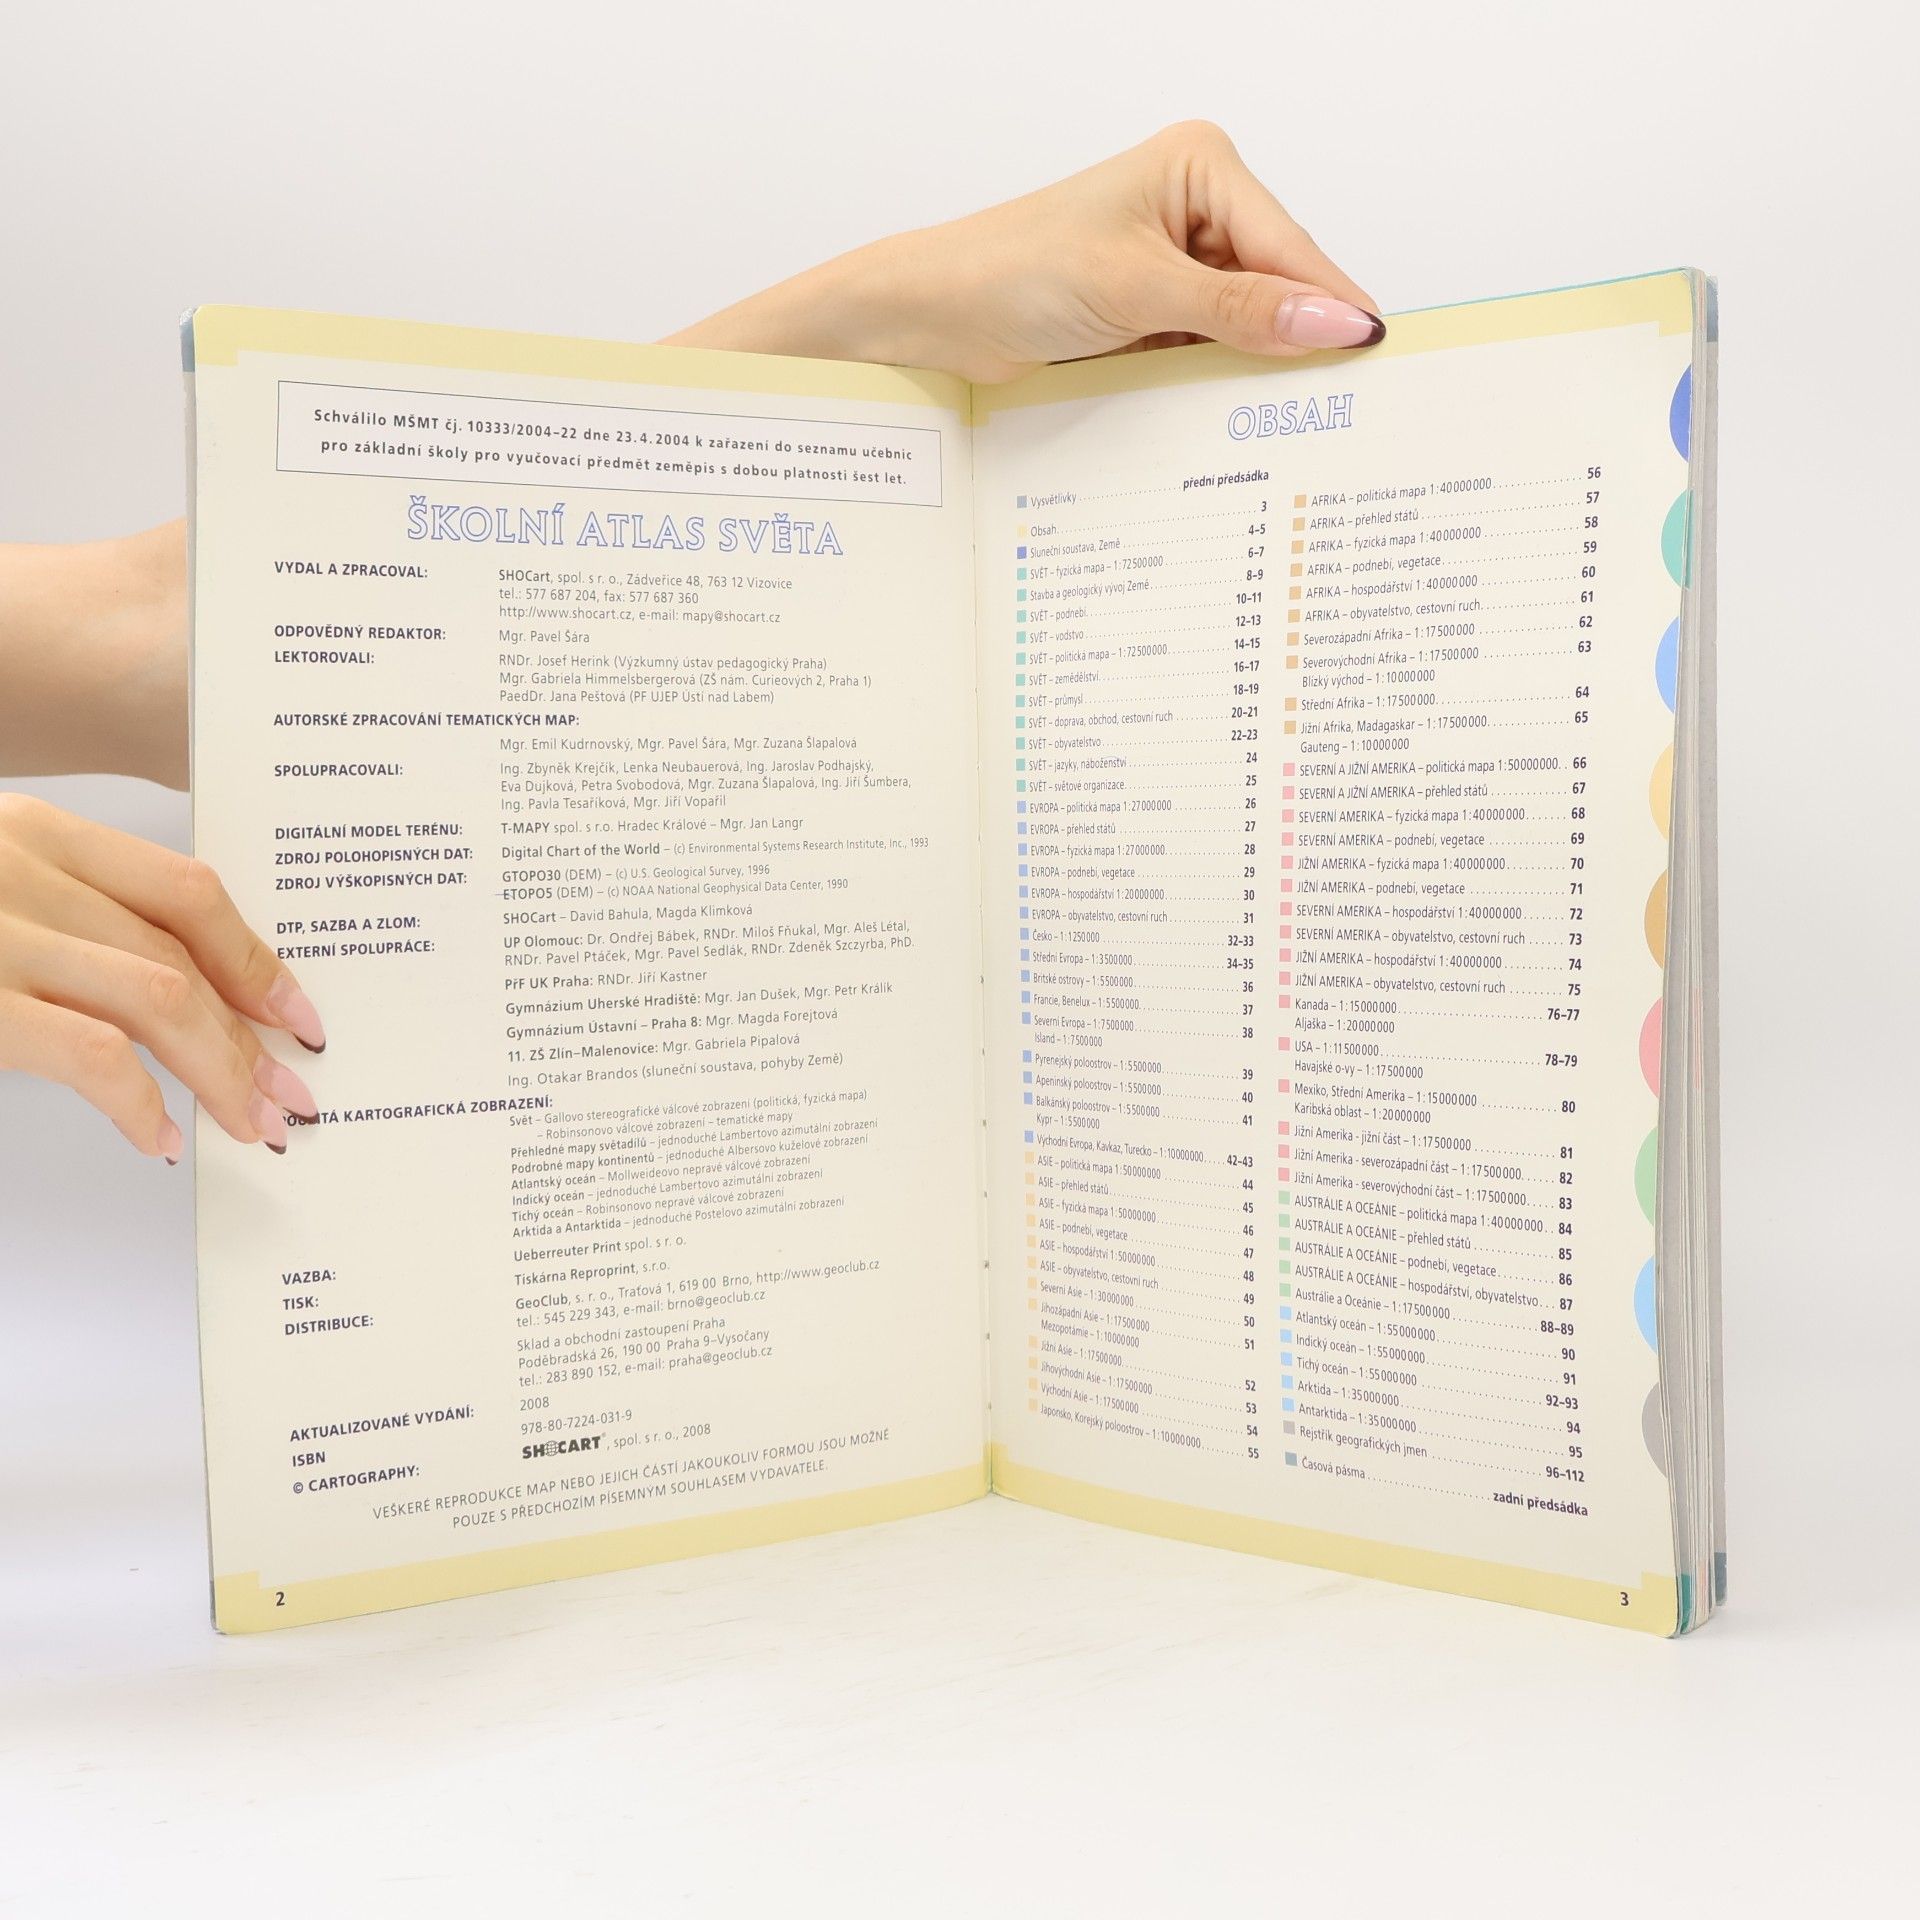 Schválilo MŠMT čj. 10333/2004–22 dne 23.4.2004 k zařazení do seznamu učebnic
pro základní školy pro vyučovací předmět zeměpis s dobou platnosti šest let.
ŠKOLNÍ ATLAS SVĚTA
VYDAL A ZPRACOVAL: SHOCart, spol. s r. o., Zádveřice 48, 763 12 Vizovice
tel.: 577 687 204, fax: 577 687 360
http://www.shocart.cz, e-mail: mapy@shocart.cz
ODPOVĚDNÝ REDAKTOR: Mgr. Pavel Šára
LEKTOROVALI: RNDr. Josef Herink (Výzkumný ústav pedagogický Praha)
Mgr. Gabriela Himmelsbergerová (ZŠ nám. Curieových 2, Praha 1)
PaedDr. Jana Peštová (PF UJEP Ústí nad Labem)
AUTORSKÉ ZPRACOVÁNÍ TEMATICKÝCH MAP:
Mgr. Emil Kudrnovský, Mgr. Pavel Šára, Mgr. Zuzana Šlapalová
SPOLUPRACOVALI: Ing. Zbyněk Krejčík, Lenka Neubauerová, Ing. Jaroslav Podhajský,
Eva Dujková, Petra Svobodová, Mgr. Zuzana Šlapalová, Ing. Jiří Šumbera,
Ing. Pavla Tesaříková, Mgr. Jiří Vopařil
DIGITÁLNÍ MODEL TERÉNU: T-MAPY spol. s r.o. Hradec Králové – Mgr. Jan Langr
ZDROJ POLOHOPISNÝCH DAT: Digital Chart of the World – (c) Environmental Systems Research Institute, Inc., 1993
ZDROJ VÝŠKOPISNÝCH DAT: GTOPO30 (DEM) – (c) U.S. Geological Survey, 1996
ETOPO5 (DEM) – (c) NOAA National Geophysical Data Center, 1990
DTP, SAZBA A ZLOM: SHOCart – David Bahula, Magda Klimková
EXTERNÍ SPOLUPRÁCE: UP Olomouc: Dr. Ondřej Bábek, RNDr. Miloš Fňukal, Mgr. Aleš Létal,
RNDr. Pavel Ptáček, Mgr. Pavel Sedlák, RNDr. Zdeněk Szczyrba, PhD.
PřF UK Praha: RNDr. Jiří Kastner
Gymnázium Uherské Hradiště: Mgr. Jan Dušek, Mgr. Petr Králik
Gymnázium Ústavní – Praha 8: Mgr. Magda Forejtová
11. ZŠ Zlín–Malenovice: Mgr. Gabriela Pipalová
Ing. Otakar Brandos (sluneční soustava, pohyby Země)
KARTOGRAFICKÁ ZOBRAZENÍ:
Svět – Gallovo stereografické válcové zobrazení (politická, fyzická mapa)
– Robinsonovo válcové zobrazení – tematické mapy
Přehledné mapy světadílů – jednoduché Lambertovo azimutální zobrazení
Podrobné mapy kontinentů – jednoduché Albersovo kuželové zobrazení
Atlantský oceán – Mollweideovo nepravé válcové zobrazení
Indický oceán – jednoduché Lambertovo azimutální zobrazení
Tichý oceán – Robinsonovo nepravé válcové zobrazení
Arktida a Antarktida – jednoduché Postelovo azimutální zobrazení
VAZBA: Ueberreuter Print spol. s r. o.
TISK: Tiskárna Reproprint, s.r.o.
DISTRIBUCE: GeoClub, s. r. o., Traťová 1, 619 00 Brno, http://www.geoclub.cz
tel.: 545 229 343, e-mail: brno@geoclub.cz
Sklad a obchodní zastoupení Praha
Poděbradská 26, 190 00 Praha 9–Vysočany
tel.: 283 890 152, e-mail: praha@geoclub.cz
AKTUALIZOVANÉ VYDÁNÍ: 2008
ISBN 978-80-7224-031-9
© CARTOGRAPHY: SHOCART, spol. s r. o., 2008
VEŠKERÉ REPRODUKCE MAP NEBO JEJICH ČÁSTÍ JAKOUKOLIV FORMOU JSOU MOŽNÉ
POUZE S PŘEDCHOZÍM PÍSEMNÝM SOUHLASEM VYDAVATELE.
2
OBSAH
Vysvětlivky ........ přední předsádka
Obsah ........ 3
Sluneční soustava, Země ........ 4–5
SVĚT – fyzická mapa – 1:72500000 ........ 6–7
Stavba a geologický vývoj Země ........ 8–9
SVĚT – podnebí ........ 10–11
SVĚT – vodstvo ........ 12–13
SVĚT – politická mapa – 1:72500000 ........ 14–15
SVĚT – zemědělství ........ 16–17
SVĚT – průmysl ........ 18–19
SVĚT – doprava, obchod, cestovní ruch ........ 20–21
SVĚT – obyvatelstvo ........ 22–23
SVĚT – jazyky, náboženství ........ 24
SVĚT – světové organizace ........ 25
EVROPA – politická mapa 1:27000000 ........ 26
EVROPA – přehled států ........ 27
EVROPA – fyzická mapa 1:27000000 ........ 28
EVROPA – podnebí, vegetace ........ 29
EVROPA – hospodářství 1:20000000 ........ 30
EVROPA – obyvatelstvo, cestovní ruch ........ 31
Česko – 1:1250000 ........ 32–33
Střední Evropa – 1:3500000 ........ 34–35
Britské ostrovy – 1:5500000 ........ 36
Francie, Benelux – 1:5500000 ........ 37
Severní Evropa – 1:7500000 ........ 38
Island – 1:7500000
Pyrenejský poloostrov – 1:5500000 ........ 39
Apeninský poloostrov – 1:5500000 ........ 40
Balkánský poloostrov – 1:5500000 ........ 41
Kypr – 1:5500000
Východní Evropa, Kavkaz, Turecko – 1:10000000 ........ 42–43
ASIE – politická mapa 1:50000000 ........ 44
ASIE – přehled států ........ 45
ASIE – fyzická mapa 1:50000000 ........ 46
ASIE – podnebí, vegetace ........ 47
ASIE – hospodářství 1:50000000 ........ 48
ASIE – obyvatelstvo, cestovní ruch ........ 49
Severní Asie – 1:30000000 ........ 50
Jihozápadní Asie – 1:17500000 ........ 51
Mezopotámie – 1:10000000
Jižní Asie – 1:17500000 ........ 52
Jihovýchodní Asie – 1:17500000 ........ 53
Východní Asie – 1:17500000 ........ 54
Japonsko, Korejský poloostrov – 1:10000000 ........ 55
AFRIKA – politická mapa 1:40000000 ........ 56
AFRIKA – přehled států ........ 57
AFRIKA – fyzická mapa 1:40000000 ........ 58
AFRIKA – podnebí, vegetace ........ 59
AFRIKA – hospodářství 1:40000000 ........ 60
AFRIKA – obyvatelstvo, cestovní ruch ........ 61
Severozápadní Afrika – 1:17500000 ........ 62
Severovýchodní Afrika – 1:17500000 ........ 63
Blízký východ – 1:10000000
Střední Afrika – 1:17500000 ........ 64
Jižní Afrika, Madagaskar – 1:17500000 ........ 65
Gauteng – 1:10000000
SEVERNÍ A JIŽNÍ AMERIKA – politická mapa 1:50000000 .. 66
SEVERNÍ A JIŽNÍ AMERIKA – přehled států ........ 67
SEVERNÍ AMERIKA – fyzická mapa 1:40000000 ........ 68
SEVERNÍ AMERIKA – podnebí, vegetace ........ 69
JIŽNÍ AMERIKA – fyzická mapa 1:40000000 ........ 70
JIŽNÍ AMERIKA – podnebí, vegetace ........ 71
SEVERNÍ AMERIKA – hospodářství 1:40000000 ........ 72
SEVERNÍ AMERIKA – obyvatelstvo, cestovní ruch ........ 73
JIŽNÍ AMERIKA – hospodářství 1:40000000 ........ 74
JIŽNÍ AMERIKA – obyvatelstvo, cestovní ruch ........ 75
Kanada – 1:15000000 ........ 76–77
Aljaška – 1:20000000
USA – 1:11500000 ........ 78–79
Havajské o-vy – 1:17500000
Mexiko, Střední Amerika – 1:15000000 ........ 80
Karibská oblast – 1:20000000
Jižní Amerika - jižní část – 1:17500000 ........ 81
Jižní Amerika - severozápadní část – 1:17500000 ........ 82
Jižní Amerika - severovýchodní část – 1:17500000 ........ 83
AUSTRÁLIE A OCEÁNIE – politická mapa 1:40000000 .. 84
AUSTRÁLIE A OCEÁNIE – přehled států ........ 85
AUSTRÁLIE A OCEÁNIE – podnebí, vegetace ........ 86
AUSTRÁLIE A OCEÁNIE – hospodářství, obyvatelstvo ... 87
Austrálie a Oceánie – 1:17500000 ........ 88–89
Atlantský oceán – 1:55000000 ........ 90
Indický oceán – 1:55000000 ........ 91
Tichý oceán – 1:55000000 ........ 92–93
Arktida – 1:35000000 ........ 94
Antarktida – 1:35000000 ........ 95
Rejstřík geografických jmen ........ 96–112
Časová pásma ........ zadní předsádka
3